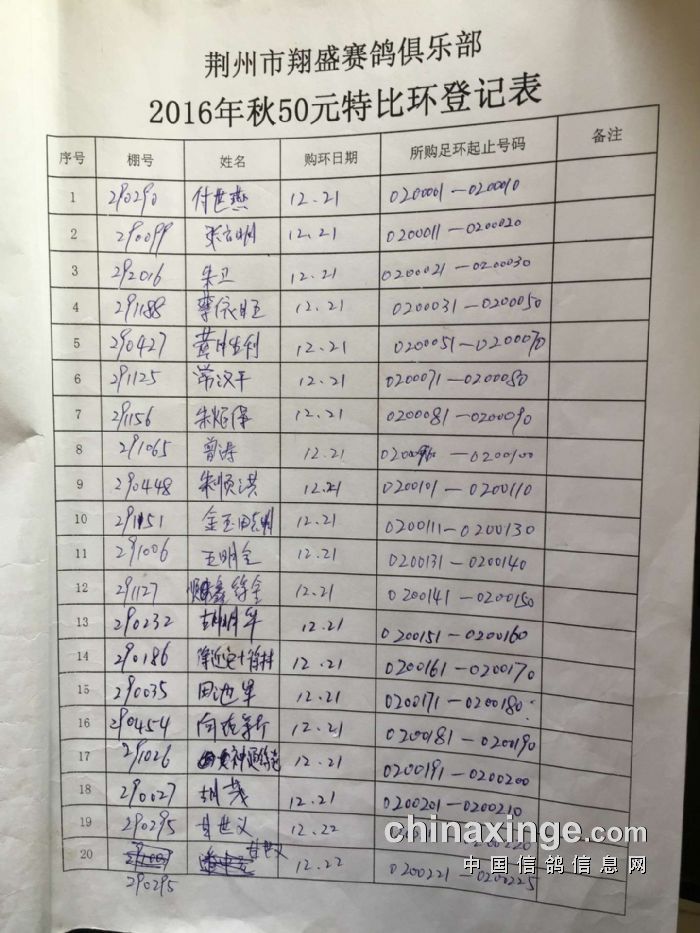 荆州市翔盛赛鸽俱乐部
2016年秋50元特比环登记表
序号 棚号 姓名 购环日期 所购足环起止号码 备注
1 290290 付世燕 12.21 0200001—0200010
2 290099 12.21 0200011—0200020
3 292016 朱卫 12.21 0200021—0200030
4 291188 12.21 0200031—0200050
5 290427 12.21 0200051—0200070
6 291125 常汉平 12.21 0200071—0200080
7 291156 12.21 0200081—0200090
8 291065 曾涛 12.21 —0200100
9 290448 朱顺洪 12.21 0200101—0200110
10 12.21 0200111—0200130
11 291006 王明全 12.21 0200131—0200140
12 291127 12.21 0200141—0200150
13 290232 12.21 0200151—0200160
14 290186 12.21 0200161—0200170
15 290035 田池军 12.21 0200171—0200180
16 290454 12.21 0200181—0200190
17 291026 12.21 0200191—0200200
18 290027 胡茂 12.21 0200201—0200210
19 290295 甘世义 12.22
20 290295 甘世义 12.22 0200221—0200225
chinaxinge.com
中国信鸽信息网